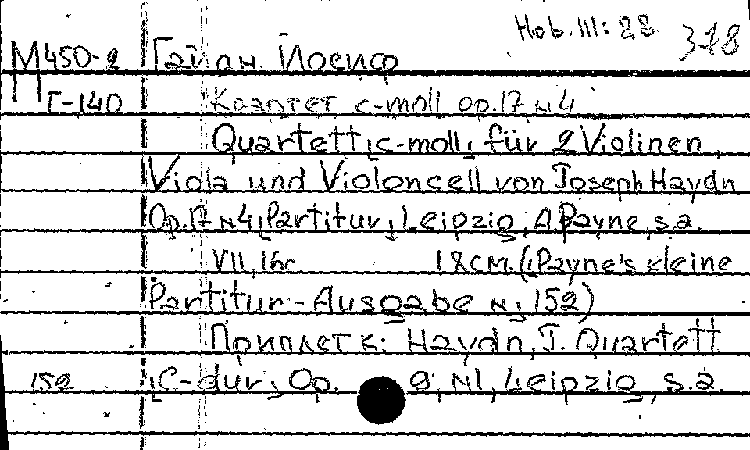 Hob.III:28 318
М450-2 Гайдн Йосиф
Г-140 Квартет c-moll op.17 N4
Quartett [c-moll] für 2 Violinen,
Viola und Violoncell von Joseph Haydn
Op.17 N4, Partitur, Leipzig, A Payne, s.a.
VII, 16с 18см. (Payne's kleine
Partitur-Ausgabe N: 152)
Приплет к: Haydn, J. Quartett
152 [C-dur], Op. 9, N1, Leipzig, s.a.